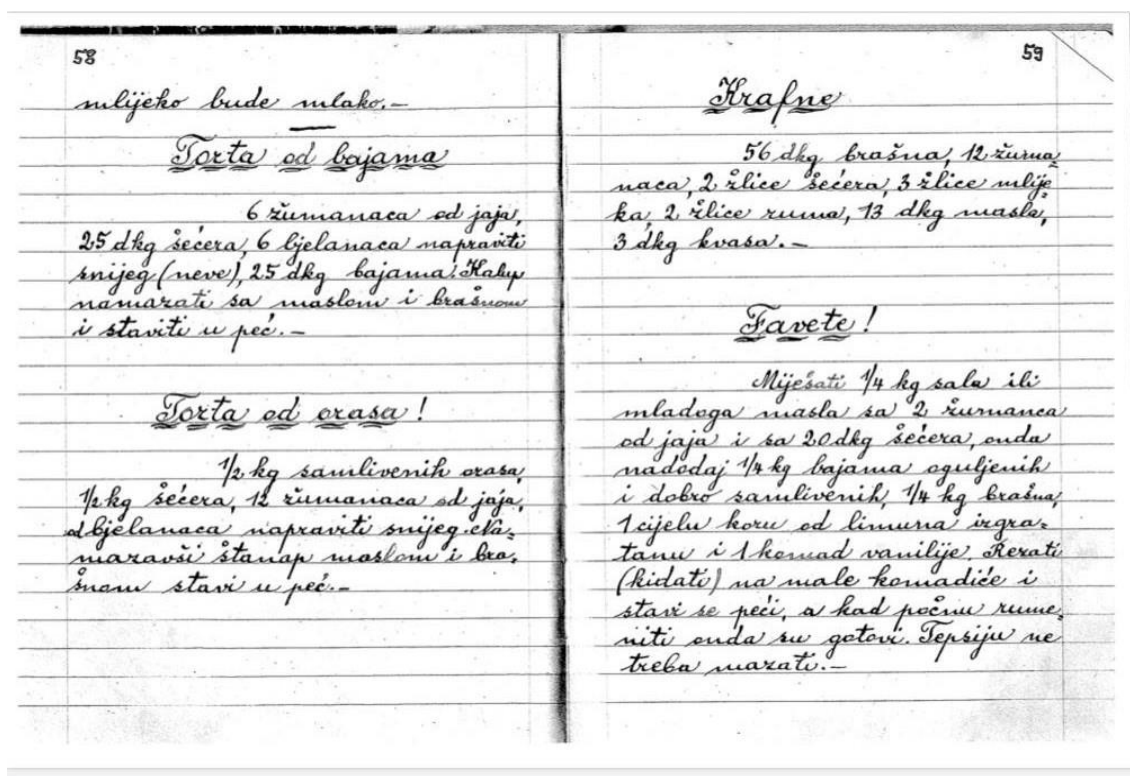 58
mlijeko bude mlako.—
Torta od bajama
6 žumanaca od jaja,
25 dkg šećera, 6 bjelanaca napraviti
snijeg (neve), 25 dkg bajama. Kalup
namazati sa maslom i brašnom
i staviti u peć.—
Torta od orasa!
1/2 kg samlivenih orasa,
1/2 kg šećera, 12 žumanaca od jaja,
od bjelanaca napraviti snijeg. Na=
mazavši štanap maslom i bra=
šnom stavi u peć.—
59
Krafne
56 dkg brašna, 12 žuma=
naca, 2 žlice šećera, 3 žlice mlije=
ka, 2 žlice ruma, 13 dkg masla,
3 dkg kvasa.—
Favete!
Miješati 1/4 kg sala ili
mladoga masla sa 2 žumanca
od jaja i sa 20 dkg šećera, onda
nadodaj 1/4 kg bajama oguljenih
i dobro samlivenih, 1/4 kg brašna,
1 cijelu koru od limuna izgra=
tanu i 1 komad vanilije. Rezati
(kidati) na male komadiće i
stavi se peći, a kad počnu rume=
niti onda su gotovi. Tepsiju ne
treba mazati.—